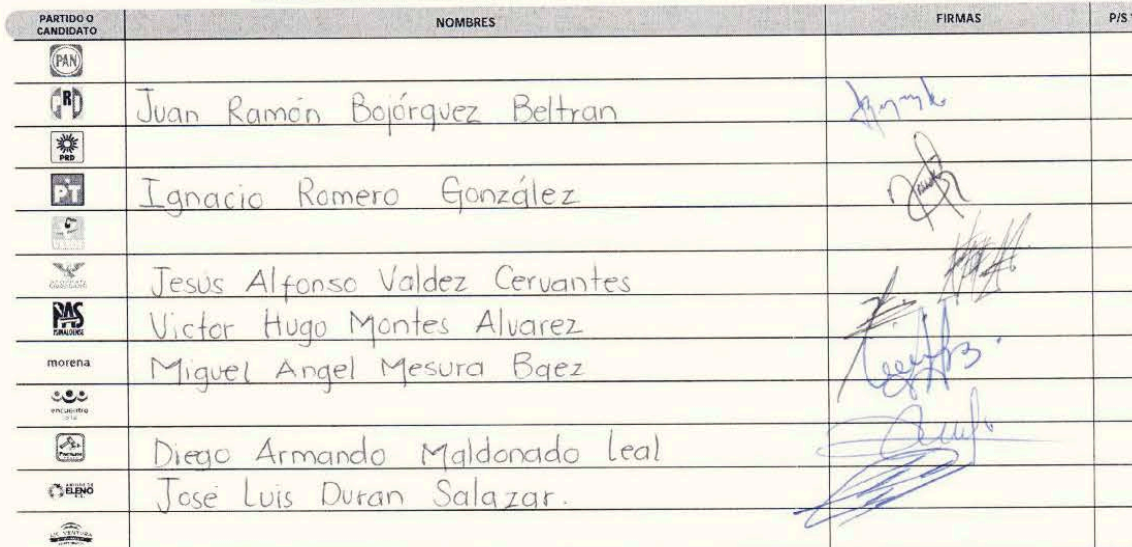 PARTIDO O CANDIDATO NOMBRES FIRMAS P/S
PAN
PRI Juan Ramón Bojórquez Beltran
PRD
PT Ignacio Romero González
Jesús Alfonso Valdez Cervantes
PAS SINALOENSE Victor Hugo Montes Alvarez
morena Miguel Angel Mesura Baez
encuentro
Diego Armando Maldonado Leal
ELENO José Luis Duran Salazar.
LIC. VENTURA